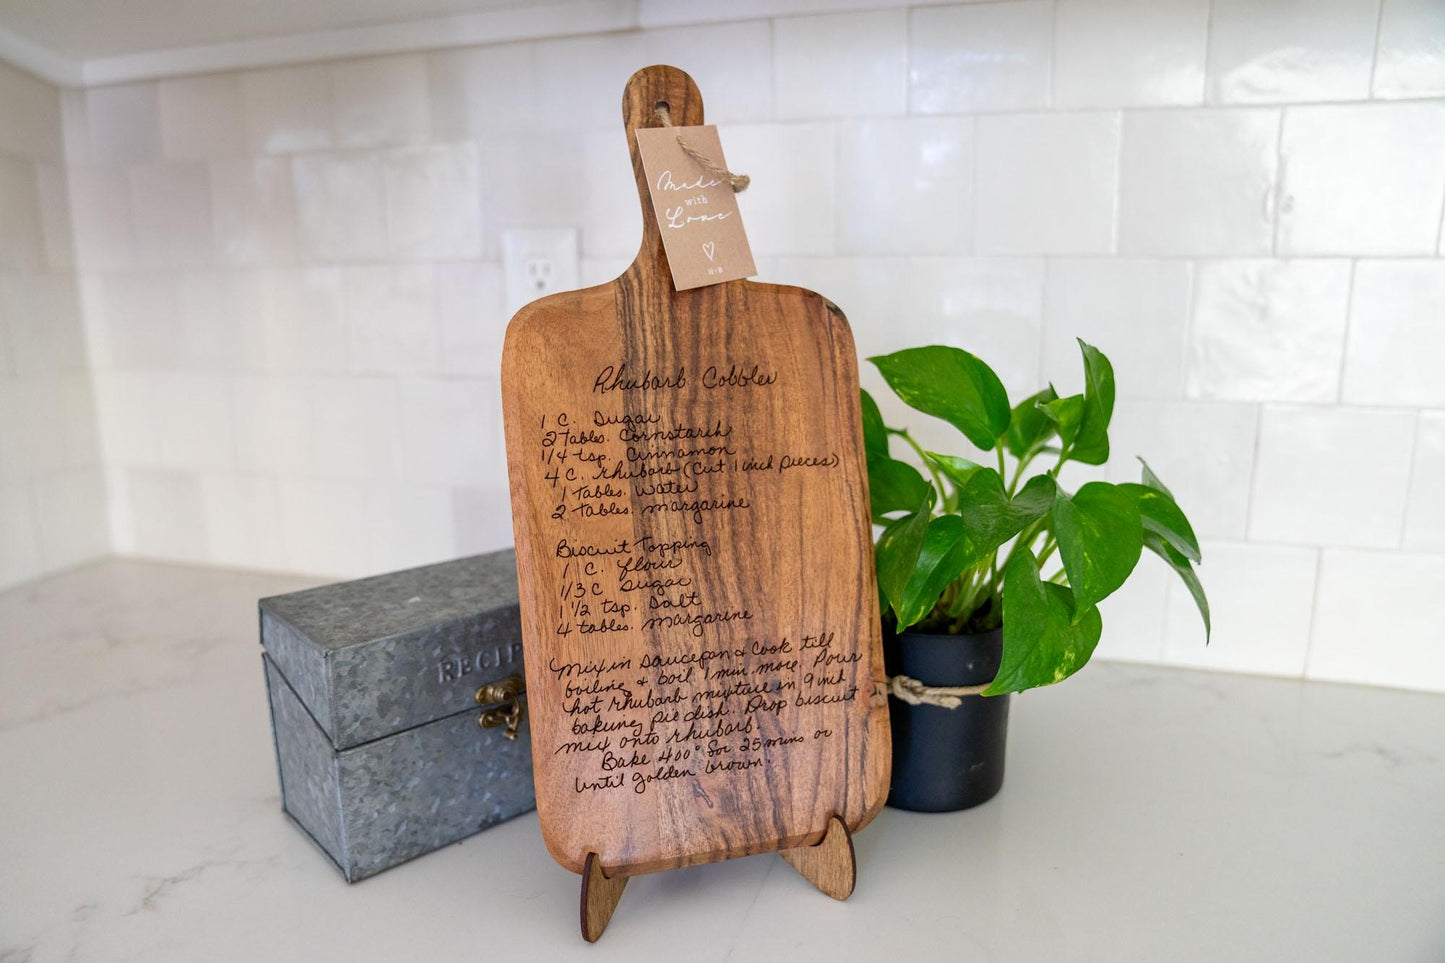 Made
with
Love
H+B
Rhubarb Cobbler
1 C. Sugar
2 Tables. Cornstarch
1/4 tsp. Cinnamon
4 C. rhubarb (Cut 1 inch pieces)
1 Tables. Water
2 tables. margarine
Biscuit Topping
1 C. flour
1/3 C Sugar
1 1/2 tsp. Salt
4 tables. margarine
Mix in saucepan & Cook till
boiling & boil 1 min. more. Pour
hot rhubarb mixture in 9 inch
baking pie dish. Drop biscuit
mix onto rhubarb.
Bake 400° for 25 mins or
Until golden brown.
RECIP